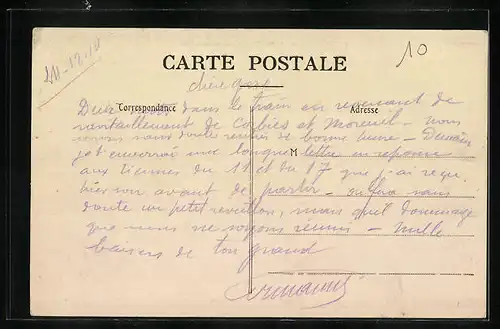 24-12-18
10
CARTE POSTALE
chère gosse
Correspondance
Adresse
Deux mots dans le train en revenant de
ravitaillement de Corbies et Moreuil - nous
serons sans doute rentrés de bonne heure - Demain
je t'enverrai une longue lettre en réponse
M
aux tiennes du 11 et du 17 que j'ai reçu
hier soir avant de partir - on fera sans
doute un petit réveillon, mais quel dommage
que nous ne soyons réunis - mille
baisers de ton grand